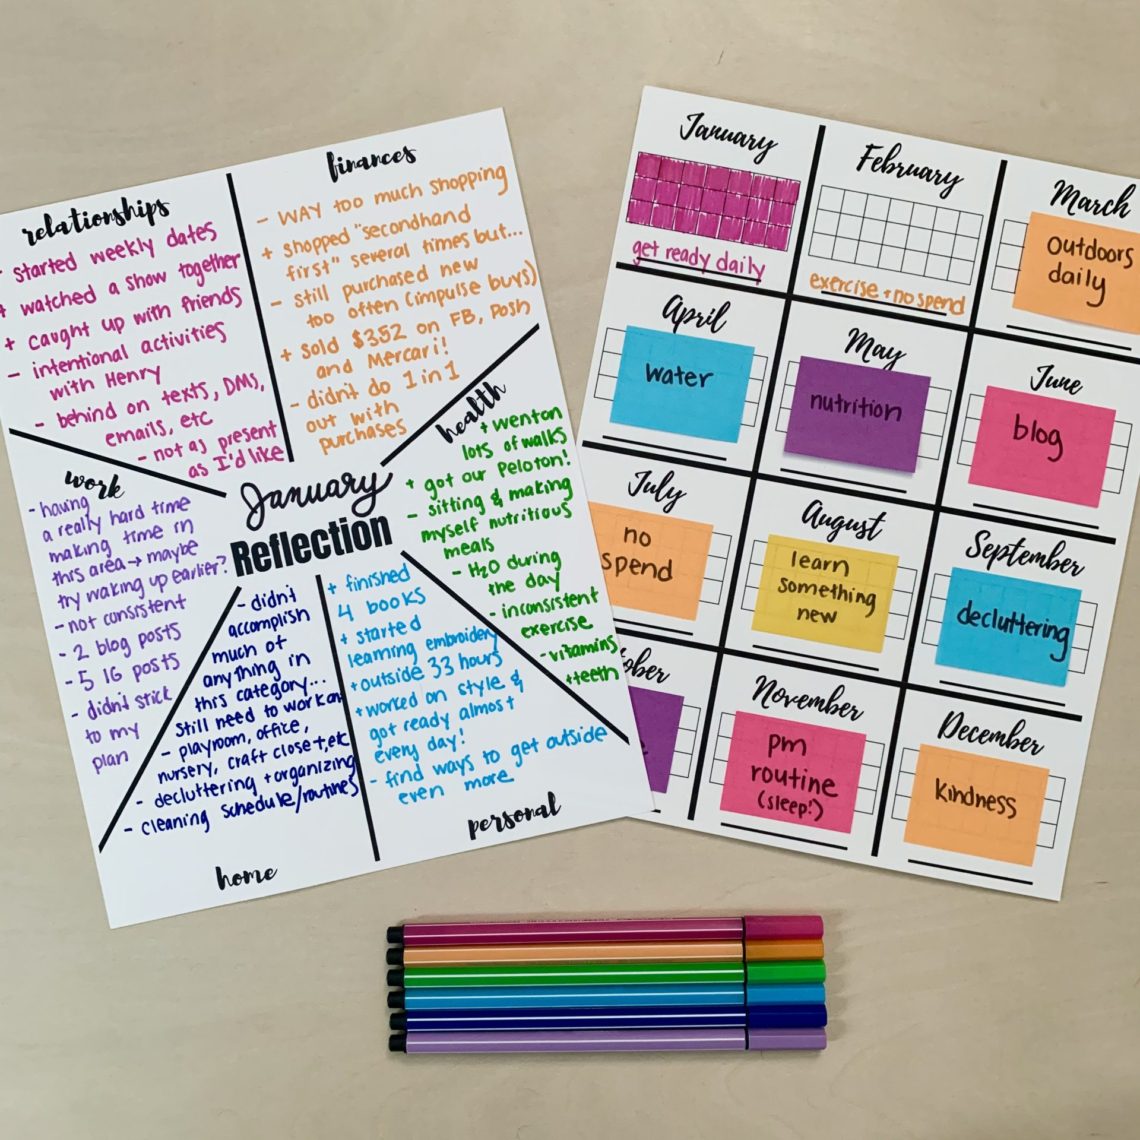 relationships
- started weekly dates
+ watched a show together
+ caught up with friends
- intentional activities
with Henry
- behind on texts, DMs,
emails, etc
- not as present
as I'd like
finances
- WAY too much shopping
+ shopped "secondhand
first" several times but...
- still purchased new
too often (impulse buys)
+ sold $352 on FB, Posh
and Mercari!
- didn't do 1 in 1
out with
purchases
health
+ went on
lots of walks
+ got our Peloton!
- sitting & making
myself nutritious
meals
- H2O during
the day
- inconsistent
exercise
- vitamins
+ teeth
work
- having
a really hard time
making time in
this area → maybe
try waking up earlier?
- not consistent
- 2 blog posts
- 5 IG posts
- didn't stick
to my
plan
January
Reflection
- didn't
accomplish
much of
anything in
this category...
still need to work on
- playroom, office,
nursery, craft closet, etc
- decluttering + organizing
- cleaning schedule/routines
home
+ finished
4 books
+ started
learning embroidery
+ outside 33 hours
+ worked on style &
got ready almost
every day!
- find ways to get outside
even more
personal
January
get ready daily
February
exercise + no spend
March
outdoors
daily
April
water
May
nutrition
June
blog
July
no
spend
August
learn
something
new
September
decluttering
ober
November
pm
routine
(sleep!)
December
kindness